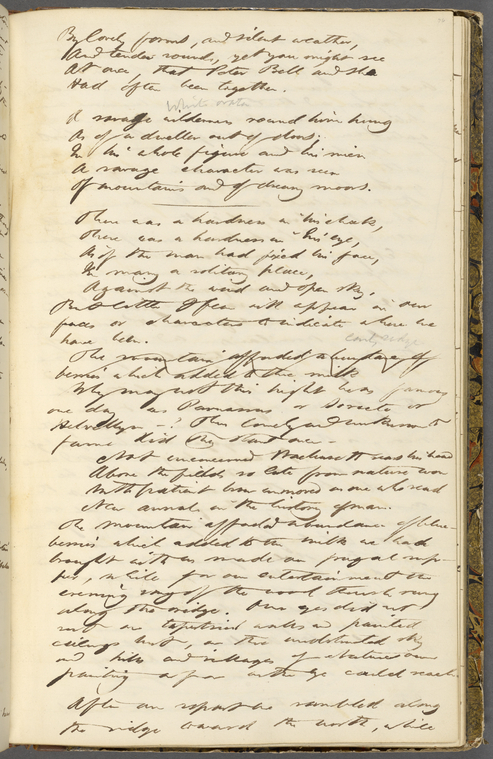 By lovely forms, and silent weather,
And tender sounds, yet you might see
At once, that Peter Bell and she
Had often been together.
A savage wilderness round him hung
As of a dweller out of doors;
In his whole figure and his mien
A savage character was seen
Of mountains and of dreary moors.
There was a hardness in his cheek,
There was a hardness in his eye,
As if the man had fixed his face,
In many a solitary place,
Against the wind and open sky,
But little I fear will appear in our
faces or characters to indicate where we
have been.
The mountain afforded abundance of
berries which added to the milk
Why may not this height be famous
one day as Parnassus or Soracte or
Helvellyn —? This lonely and unknown to
fame did they stand once —
Not unconcerned Wachusett rears his head
Above the field, so late from nature won
With patient brow unmoved as one who read
New annals in the history of man.
The mountain afforded abundance of blue-
berries which added to the milk we had
brought with us made our frugal sup-
per, while for an entertainment the
evening song of the wood thrush rung
along the ridge. Our eyes did not
rest on tapestried walls or painted
ceilings but, on the undoubted sky
and hills and villages of nature's own
painting as far as the eye could reach
After our repast we rambled along
the ridge toward the north, while